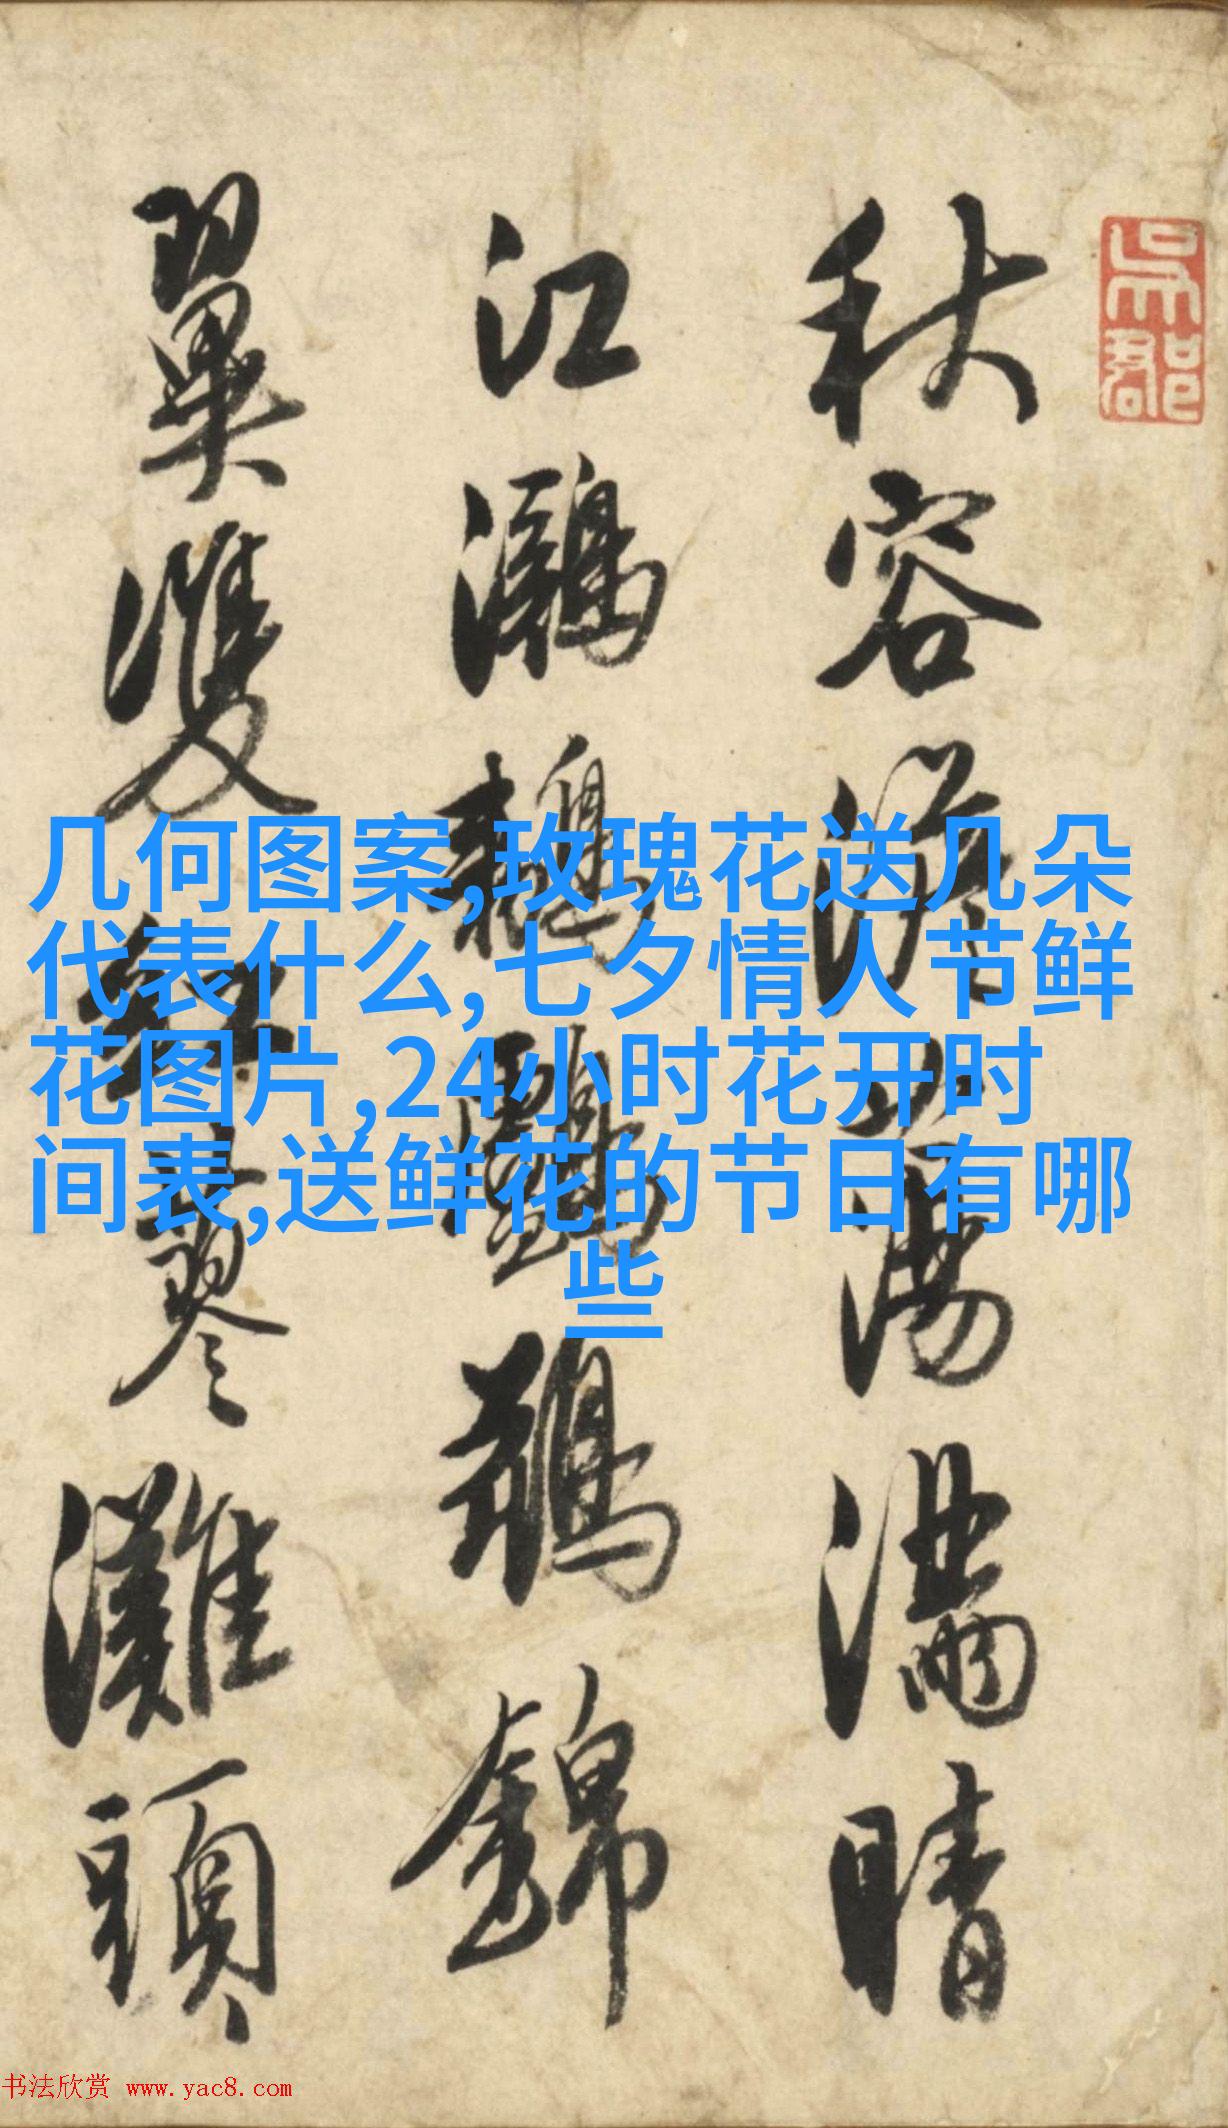 秋容淡蕩滿晴
江鸂鶒鸕鶿錦
翼雙紅蓼灘頭
吳郡
几何图案,玫瑰花送几朵
代表什么,七夕情人节鲜
花图片,24小时花开时
间表,送鲜花的节日有哪
些
书法欣赏 www.yac8.com